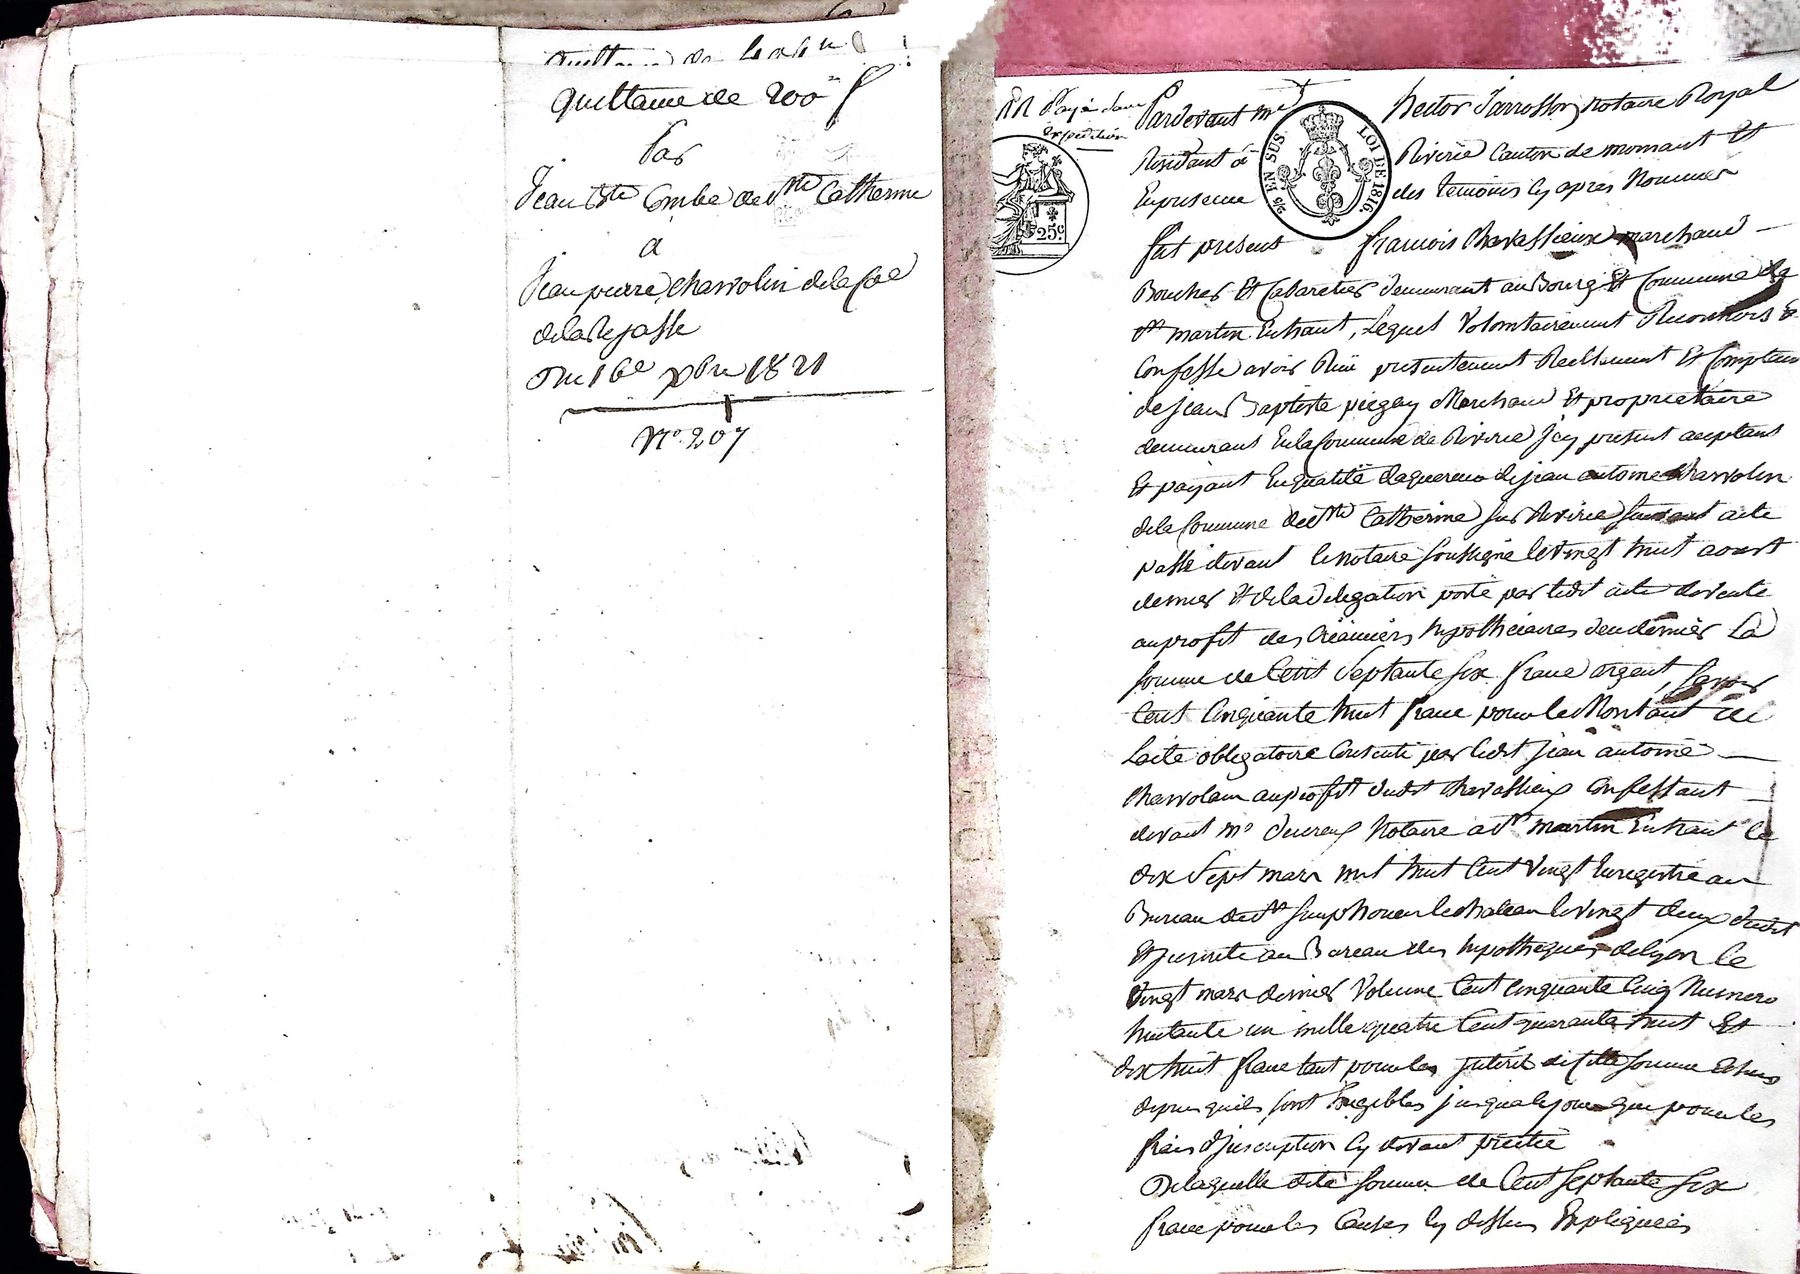 quittance de 200 f
Par
Jean Bte Combe de Ste Catherine
a
Jean pierre Charvolin de la Coe
de la Rajasse
Du 16e xbre 1821
No. 207
RR Payé dans
expedition
Pardevant Me hector Jarrosson notaire Royal
Residant à Riverie Canton de mornant Et
En presence des temoins cy apres Nommés
fut present francois Chavassieux marchand
Boucher Et Cabaretier demeurant au Bourg Et Commune de
St martin Enhaut, Lequel Volontairement Reconnois &
Confesse avoir Reçu presentement Reellement Et Comptant
de jean Baptiste piegay Marchand Et proprietaire
demeurant En la Commune de Riverie Icy present acceptant
Et payant En qualité daquereur de jean antoine Charvolin
de la Commune de Ste Catherine sur Riverie suivant acte
passé devant le notaire soussigné le vingt huit aoust
dernier Et de la delegation porté par ledit acte de vente
au profit des Créanciers hypothécaires de ce dernier La
somme de Cent Septante six franc argent, savoir
Cent Cinquante huit franc pour le Montant de
Lacte obligatoire Consenti par ledit Jean antoine
Charvolain au profit dudit Chavassieux Confessant
devant Me notaire a St martin Enhaut le
dix Sept mars mil huit Cent Vingt Enregistré au
Bureau de St Simphorien le chateau le vingt deux dudit
Et Inscrite au Bureau des hypotheques de lyon le
Vingt mars dernier Volume Cent Cinquante Cinq Numero
huitante un mille quatre Cent quarante huit Et
dix huit franc tant pour les Intérêt de Cette somme Echus
depuis quils sont Exigibles jusqua ce jour que pour les
frais dInscription cy devant precitée
De laquelle dite somme de Cent Septante six
franc pour les Causes cy dessus Expliquées
25c
2/5 EN SUS
LOI DE 1816.